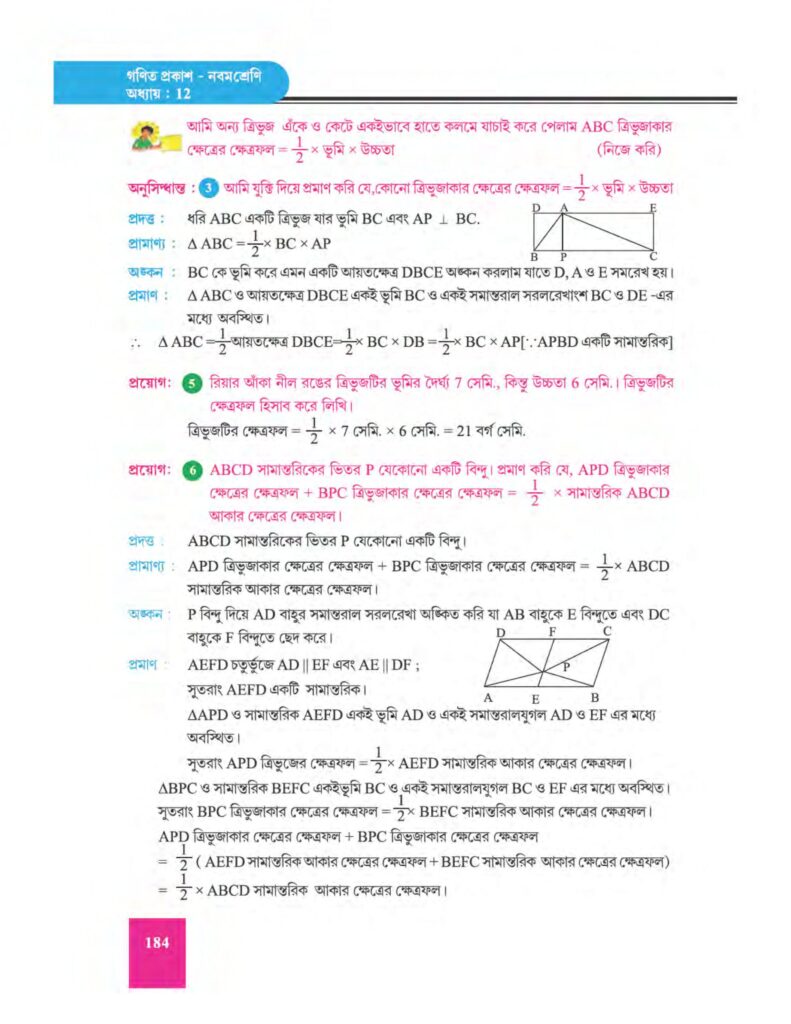 গণিত প্রকাশ - নবমশ্রেণি
অধ্যায় : 12
আমি অন্য ত্রিভুজ এঁকে ও কেটে একইভাবে হাতে কলমে যাচাই করে পেলাম ABC ত্রিভুজাকার
ক্ষেত্রের ক্ষেত্রফল = 1/2 × ভূমি × উচ্চতা (নিজে করি)
অনুসিদ্ধান্ত : 3 আমি যুক্তি দিয়ে প্রমাণ করি যে,কোনো ত্রিভুজাকার ক্ষেত্রের ক্ষেত্রফল = 1/2 × ভূমি × উচ্চতা
প্রদত্ত : ধরি ABC একটি ত্রিভুজ যার ভূমি BC এবং AP ⊥ BC.
D A E
প্রামাণ্য : Δ ABC = 1/2 × BC × AP
B P C
অঙ্কন : BC কে ভূমি করে এমন একটি আয়তক্ষেত্র DBCE অঙ্কন করলাম যাতে D, A ও E সমরেখ হয়।
প্রমাণ : Δ ABC ও আয়তক্ষেত্র DBCE একই ভূমি BC ও একই সমান্তরাল সরলরেখাংশ BC ও DE -এর
মধ্যে অবস্থিত।
∴ Δ ABC = 1/2 আয়তক্ষেত্র DBCE= 1/2 × BC × DB = 1/2 × BC × AP[∵APBD একটি সামান্তরিক]
প্রয়োগ: 5 রিয়ার আঁকা নীল রঙের ত্রিভুজটির ভূমির দৈর্ঘ্য 7 সেমি., কিন্তু উচ্চতা 6 সেমি.। ত্রিভুজটির
ক্ষেত্রফল হিসাব করে লিখি।
ত্রিভুজটির ক্ষেত্রফল = 1/2 × 7 সেমি. × 6 সেমি. = 21 বর্গ সেমি.
প্রয়োগ: 6 ABCD সামান্তরিকের ভিতর P যেকোনো একটি বিন্দু। প্রমাণ করি যে, APD ত্রিভুজাকার
ক্ষেত্রের ক্ষেত্রফল + BPC ত্রিভুজাকার ক্ষেত্রের ক্ষেত্রফল = 1/2 × সামান্তরিক ABCD
আকার ক্ষেত্রের ক্ষেত্রফল।
প্রদত্ত : ABCD সামান্তরিকের ভিতর P যেকোনো একটি বিন্দু।
প্রামাণ্য : APD ত্রিভুজাকার ক্ষেত্রের ক্ষেত্রফল + BPC ত্রিভুজাকার ক্ষেত্রের ক্ষেত্রফল = 1/2 × ABCD
সামান্তরিক আকার ক্ষেত্রের ক্ষেত্রফল।
অঙ্কন : P বিন্দু দিয়ে AD বাহুর সমান্তরাল সরলরেখা অঙ্কিত করি যা AB বাহুকে E বিন্দুতে এবং DC
বাহুকে F বিন্দুতে ছেদ করে।
D F C
প্রমাণ : AEFD চতুর্ভুজে AD || EF এবং AE || DF ;
P
সুতরাং AEFD একটি সামান্তরিক।
A E B
ΔAPD ও সামান্তরিক AEFD একই ভূমি AD ও একই সমান্তরালযুগল AD ও EF এর মধ্যে
অবস্থিত।
সুতরাং APD ত্রিভুজের ক্ষেত্রফল = 1/2 × AEFD সামান্তরিক আকার ক্ষেত্রের ক্ষেত্রফল।
ΔBPC ও সামান্তরিক BEFC একইভূমি BC ও একই সমান্তরালযুগল BC ও EF এর মধ্যে অবস্থিত।
সুতরাং BPC ত্রিভুজাকার ক্ষেত্রের ক্ষেত্রফল = 1/2 × BEFC সামান্তরিক আকার ক্ষেত্রের ক্ষেত্রফল।
APD ত্রিভুজাকার ক্ষেত্রের ক্ষেত্রফল + BPC ত্রিভুজাকার ক্ষেত্রের ক্ষেত্রফল
= 1/2 ( AEFD সামান্তরিক আকার ক্ষেত্রের ক্ষেত্রফল + BEFC সামান্তরিক আকার ক্ষেত্রের ক্ষেত্রফল)
= 1/2 × ABCD সামান্তরিক আকার ক্ষেত্রের ক্ষেত্রফল।
184